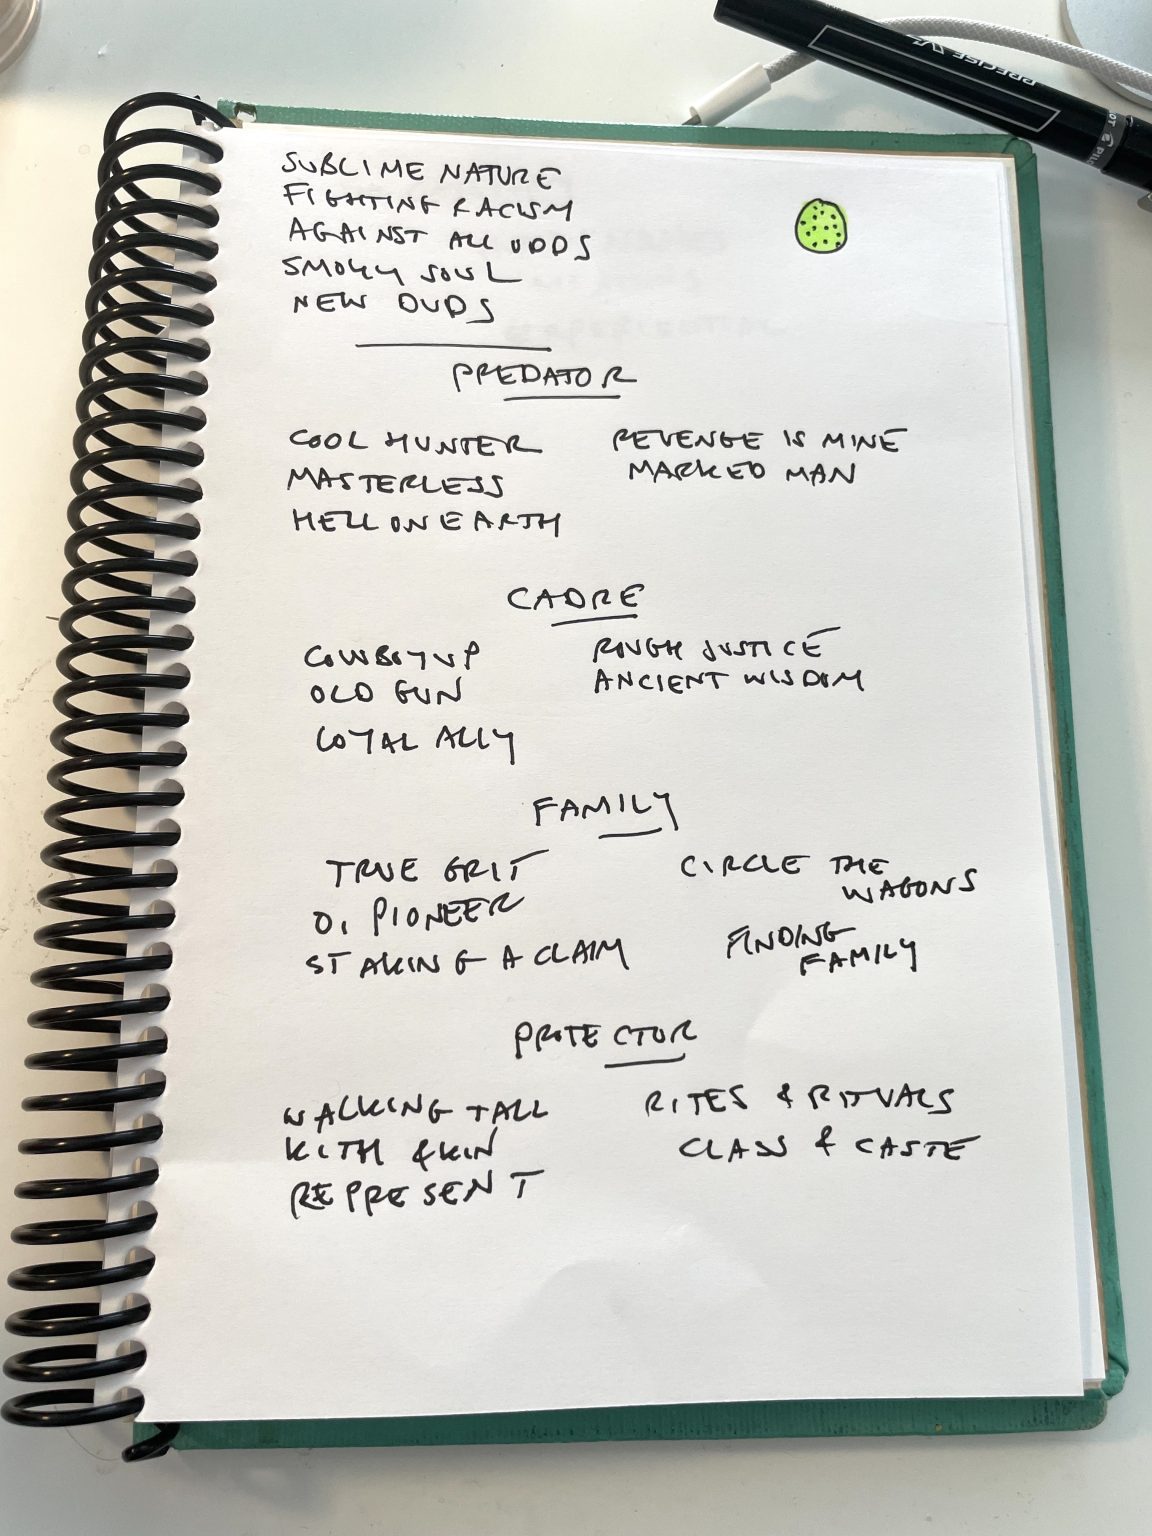 PRECISE V
PILOT
SUBLIME NATURE
FIGHTING RACISM
AGAINST ALL ODDS
SMOKY SOUL
NEW DUDS
PREDATOR
COOL HUNTER
MASTERLESS
HELL ON EARTH
REVENGE IS MINE
MARKED MAN
CADRE
COWBOY UP
OLD GUN
LOYAL ALLY
ROUGH JUSTICE
ANCIENT WISDOM
FAMILY
TRUE GRIT
O, PIONEER
STAKING A CLAIM
CIRCLE THE
WAGONS
FINDING
FAMILY
PROTECTOR
WALKING TALL
KITH & KIN
REPRESENT
RITES & RITUALS
CLASS & CASTE